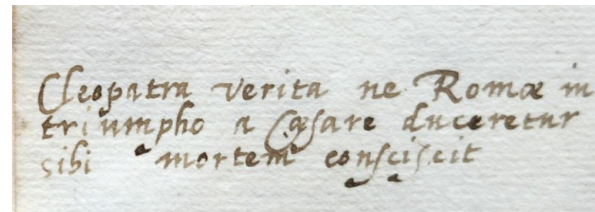 Cleopatra verita ne Romæ in
triumpho a Cæsare duceretur
sibi mortem consciscit